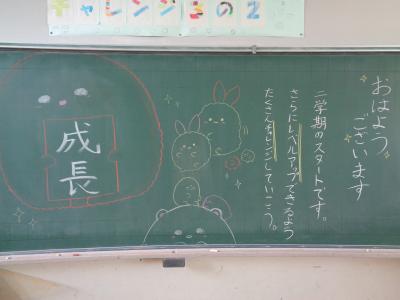 チャレンジその2
おはよう
ございます
二学期のスタートです。
さらにレベルアップできるよう
たくさんチャレンジしていこう。
成長